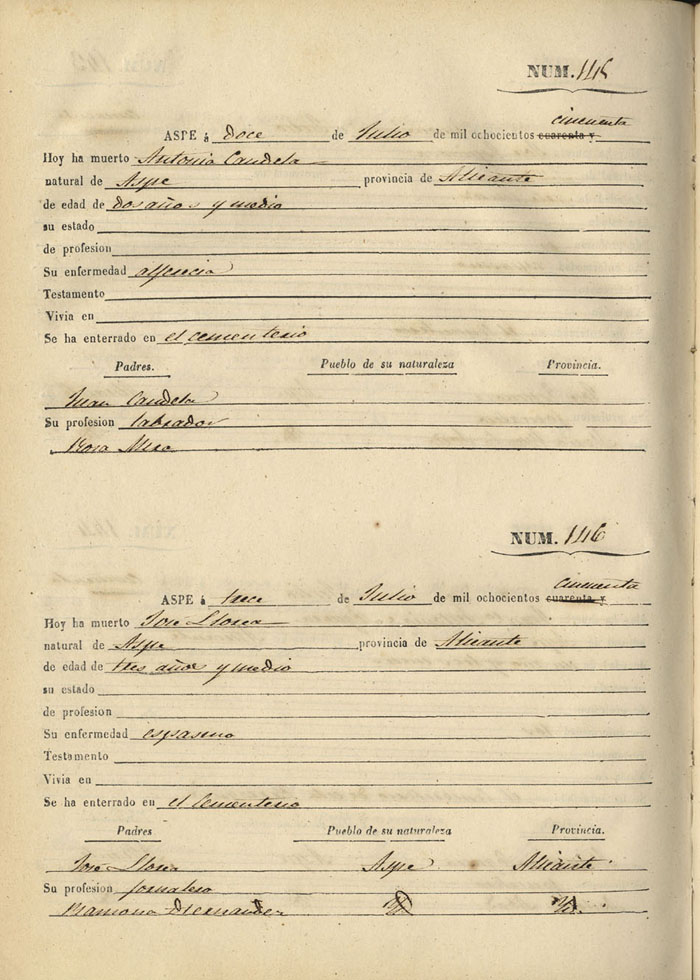 NUM. 145
cincuenta
ASPE á doce de Julio de mil ochocientos cuarenta y
Hoy ha muerto Antonia Candela
natural de Aspe provincia de Alicante
de edad de dos años y medio
su estado
de profesion
Su enfermedad alferecia
Testamento
Vivia en
Se ha enterrado en el cementerio
Padres. Pueblo de su naturaleza Provincia.
Juan Candela
Su profesion labrador
Rosa Mira
NUM. 146
cincuenta
ASPE á trece de Julio de mil ochocientos cuarenta y
Hoy ha muerto Jose Llorca
natural de Aspe provincia de Alicante
de edad de tres años y medio
su estado
de profesion
Su enfermedad espasmo
Testamento
Vivia en
Se ha enterrado en el Cementerio
Padres Pueblo de su naturaleza Provincia.
Jose Llorca Aspe Alicante
Su profesion jornalero
Ramona Hernandez Yd Yd.